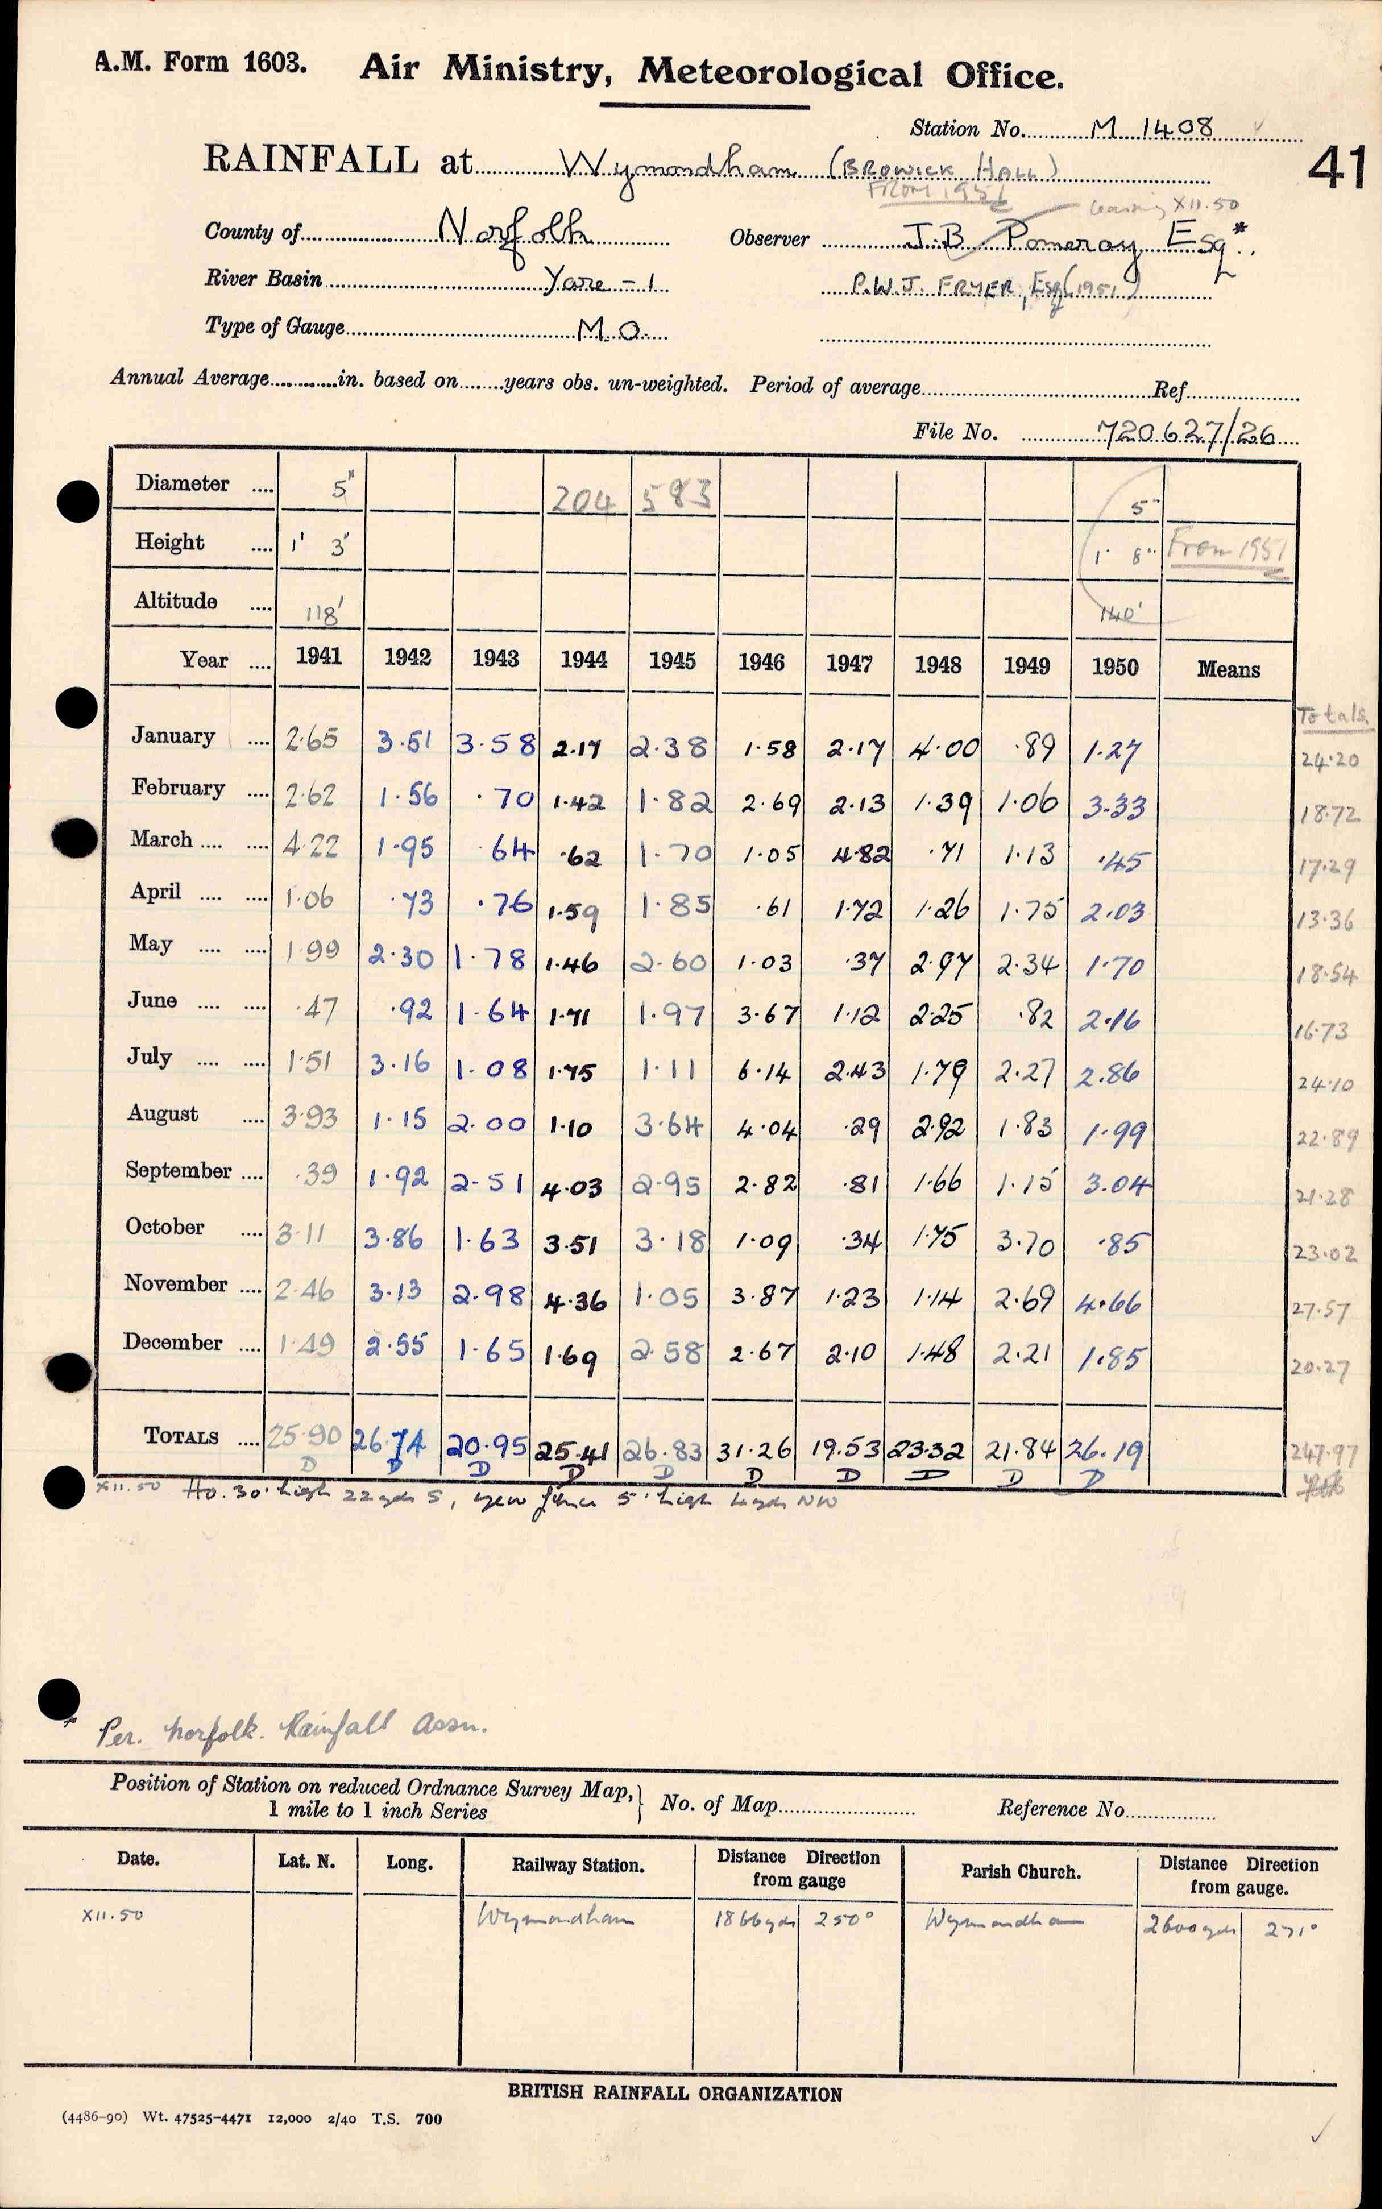 A.M. Form 1603. Air Ministry, Meteorological Office.
Station No. M 1408
41
RAINFALL at Wymondham (BROWICK HALL)
FROM 1951
leaving XII.50
County of Norfolk Observer J.B Pomeroy Esq*
River Basin Yare - 1 P.W.J. FRYER, Esq (1951)
Type of Gauge M.O.
Annual Average in. based on years obs. un-weighted. Period of average Ref
File No. 720627/26
Diameter 5" 204 583 5"
Height 1' 3" 1' 8" From 1951
Altitude 118' 140'
Year 1941 1942 1943 1944 1945 1946 1947 1948 1949 1950 Means
Totals
January 2.65 3.51 3.58 2.17 2.38 1.58 2.17 4.00 .89 1.27 24.20
February 2.62 1.56 .70 1.42 1.82 2.69 2.13 1.39 1.06 3.33 18.72
March 4.22 1.95 .64 .62 1.70 1.05 4.82 .71 1.13 .45 17.29
April 1.06 .73 .76 1.59 1.85 .61 1.72 1.26 1.75 2.03 13.36
May 1.99 2.30 1.78 1.46 2.60 1.03 .37 2.97 2.34 1.70 18.54
June .47 .92 1.64 1.71 1.97 3.67 1.12 2.25 .82 2.16 16.73
July 1.51 3.16 1.08 1.75 1.11 6.14 2.43 1.79 2.27 2.86 24.10
August 3.93 1.15 2.00 1.10 3.64 4.04 .29 2.92 1.83 1.99 22.89
September .39 1.92 2.51 4.03 2.95 2.82 .81 1.66 1.15 3.04 21.28
October 3.11 3.86 1.63 3.51 3.18 1.09 .34 1.75 3.70 .85 23.02
November 2.46 3.13 2.98 4.36 1.05 3.87 1.23 1.14 2.69 4.66 27.57
December 1.49 2.55 1.65 1.69 2.58 2.67 2.10 1.48 2.21 1.85 20.27
TOTALS 25.90 26.74 20.95 25.41 26.83 31.26 19.53 23.32 21.84 26.19 247.97
D D D D D D D D D D
XII.50 Ho. 30' high 22 yds S, new fence 5' high 4 yds NW
* Per. Norfolk. Rainfall Assn.
Position of Station on reduced Ordnance Survey Map, 1 mile to 1 inch Series } No. of Map Reference No
Date. Lat. N. Long. Railway Station. Distance Direction from gauge Parish Church. Distance Direction from gauge.
XII.50 Wymondham 1866 yds 250° Wymondham 2600 yds 271°
BRITISH RAINFALL ORGANIZATION
(4486-90) Wt. 47525-4471 12,000 2/40 T.S. 700